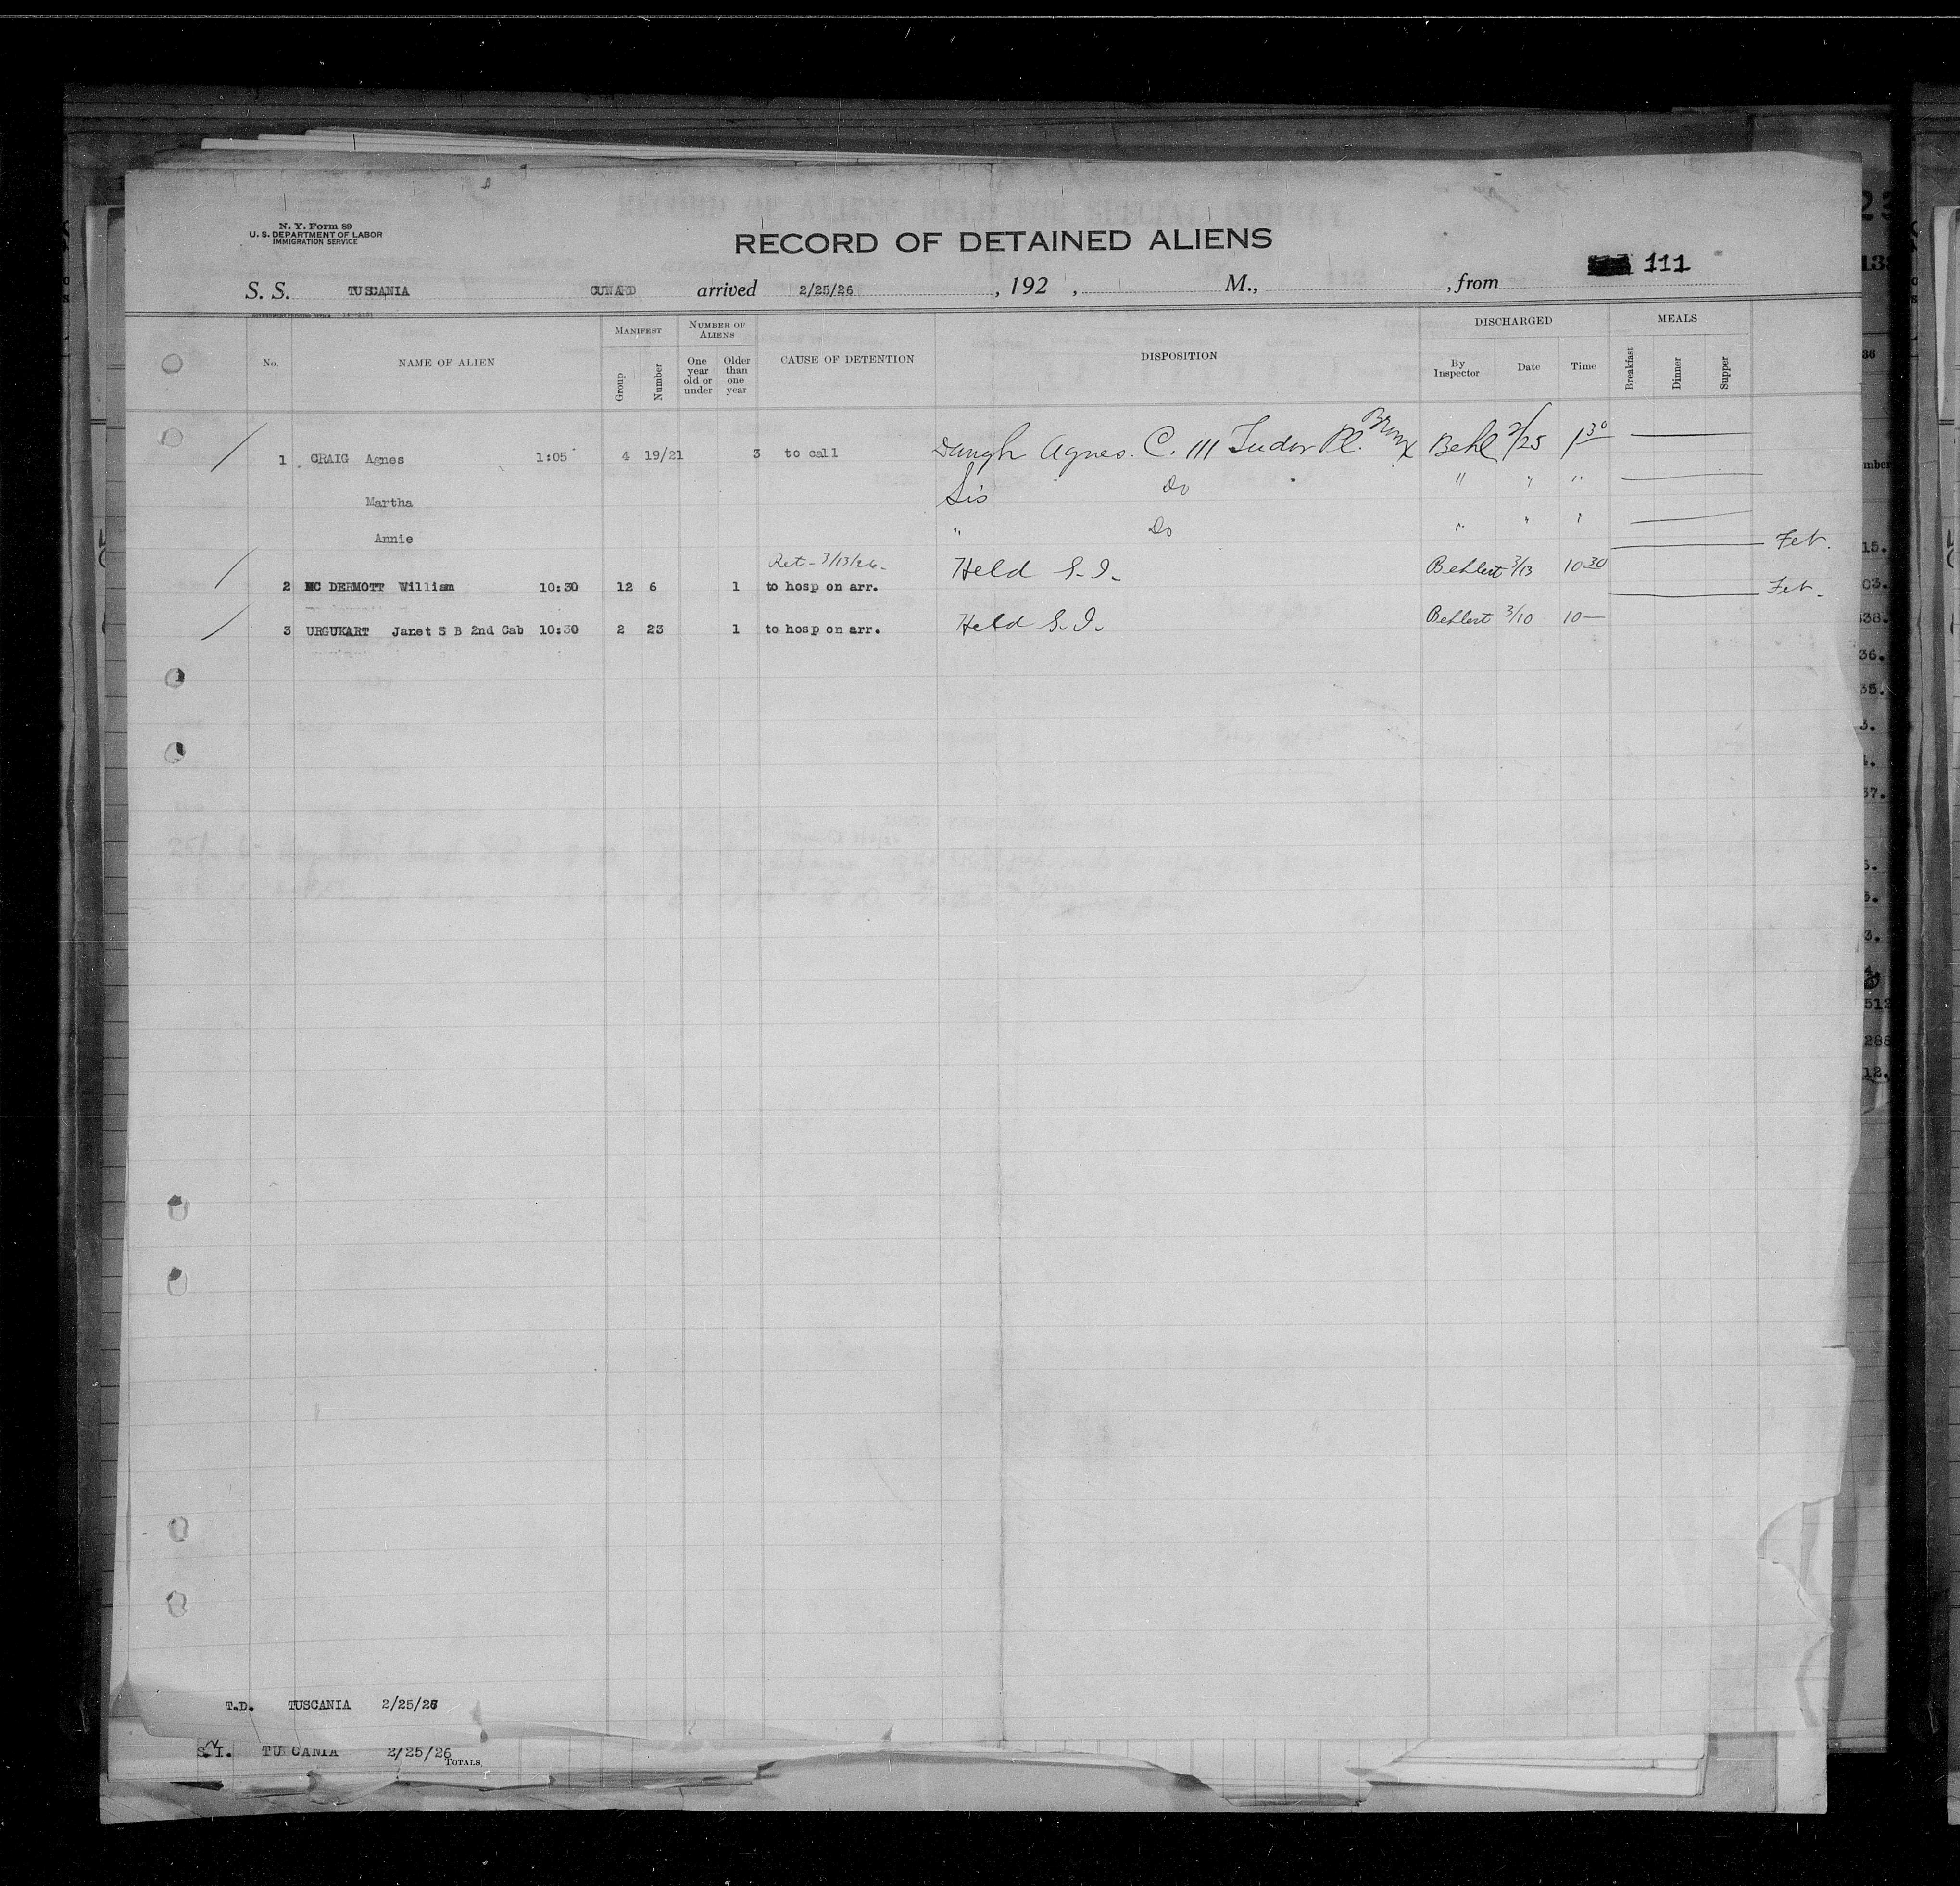 N. Y. Form 89
U. S. DEPARTMENT OF LABOR
IMMIGRATION SERVICE
RECORD OF DETAINED ALIENS
111
S. S. TUSCANIA CUNARD arrived 2/25/26 , 192 , M., , from
No. NAME OF ALIEN MANIFEST Group Number NUMBER OF ALIENS One year old or under Older than one year CAUSE OF DETENTION DISPOSITION DISCHARGED By Inspector Date Time MEALS Breakfast Dinner Supper
1 CRAIG Agnes 1:05 4 19/21 3 to call Daugh Agnes. C. 111 Tudor Pl. Bronx Behl 2/25 1 30
Martha Sis Do " " "
Annie " Do " " "
Ret - 3/13/26 -
2 MC DERMOTT William 10:30 12 6 1 to hosp on arr. Held S.I. Behlert 3/13 10 30
3 URGUKART Janet S B 2nd Cab 10:30 2 23 1 to hosp on arr. Held S.I. Behlert 3/10 10 —
T.D. TUSCANIA 2/25/26
S.I. TUSCANIA 2/25/26
TOTALS,